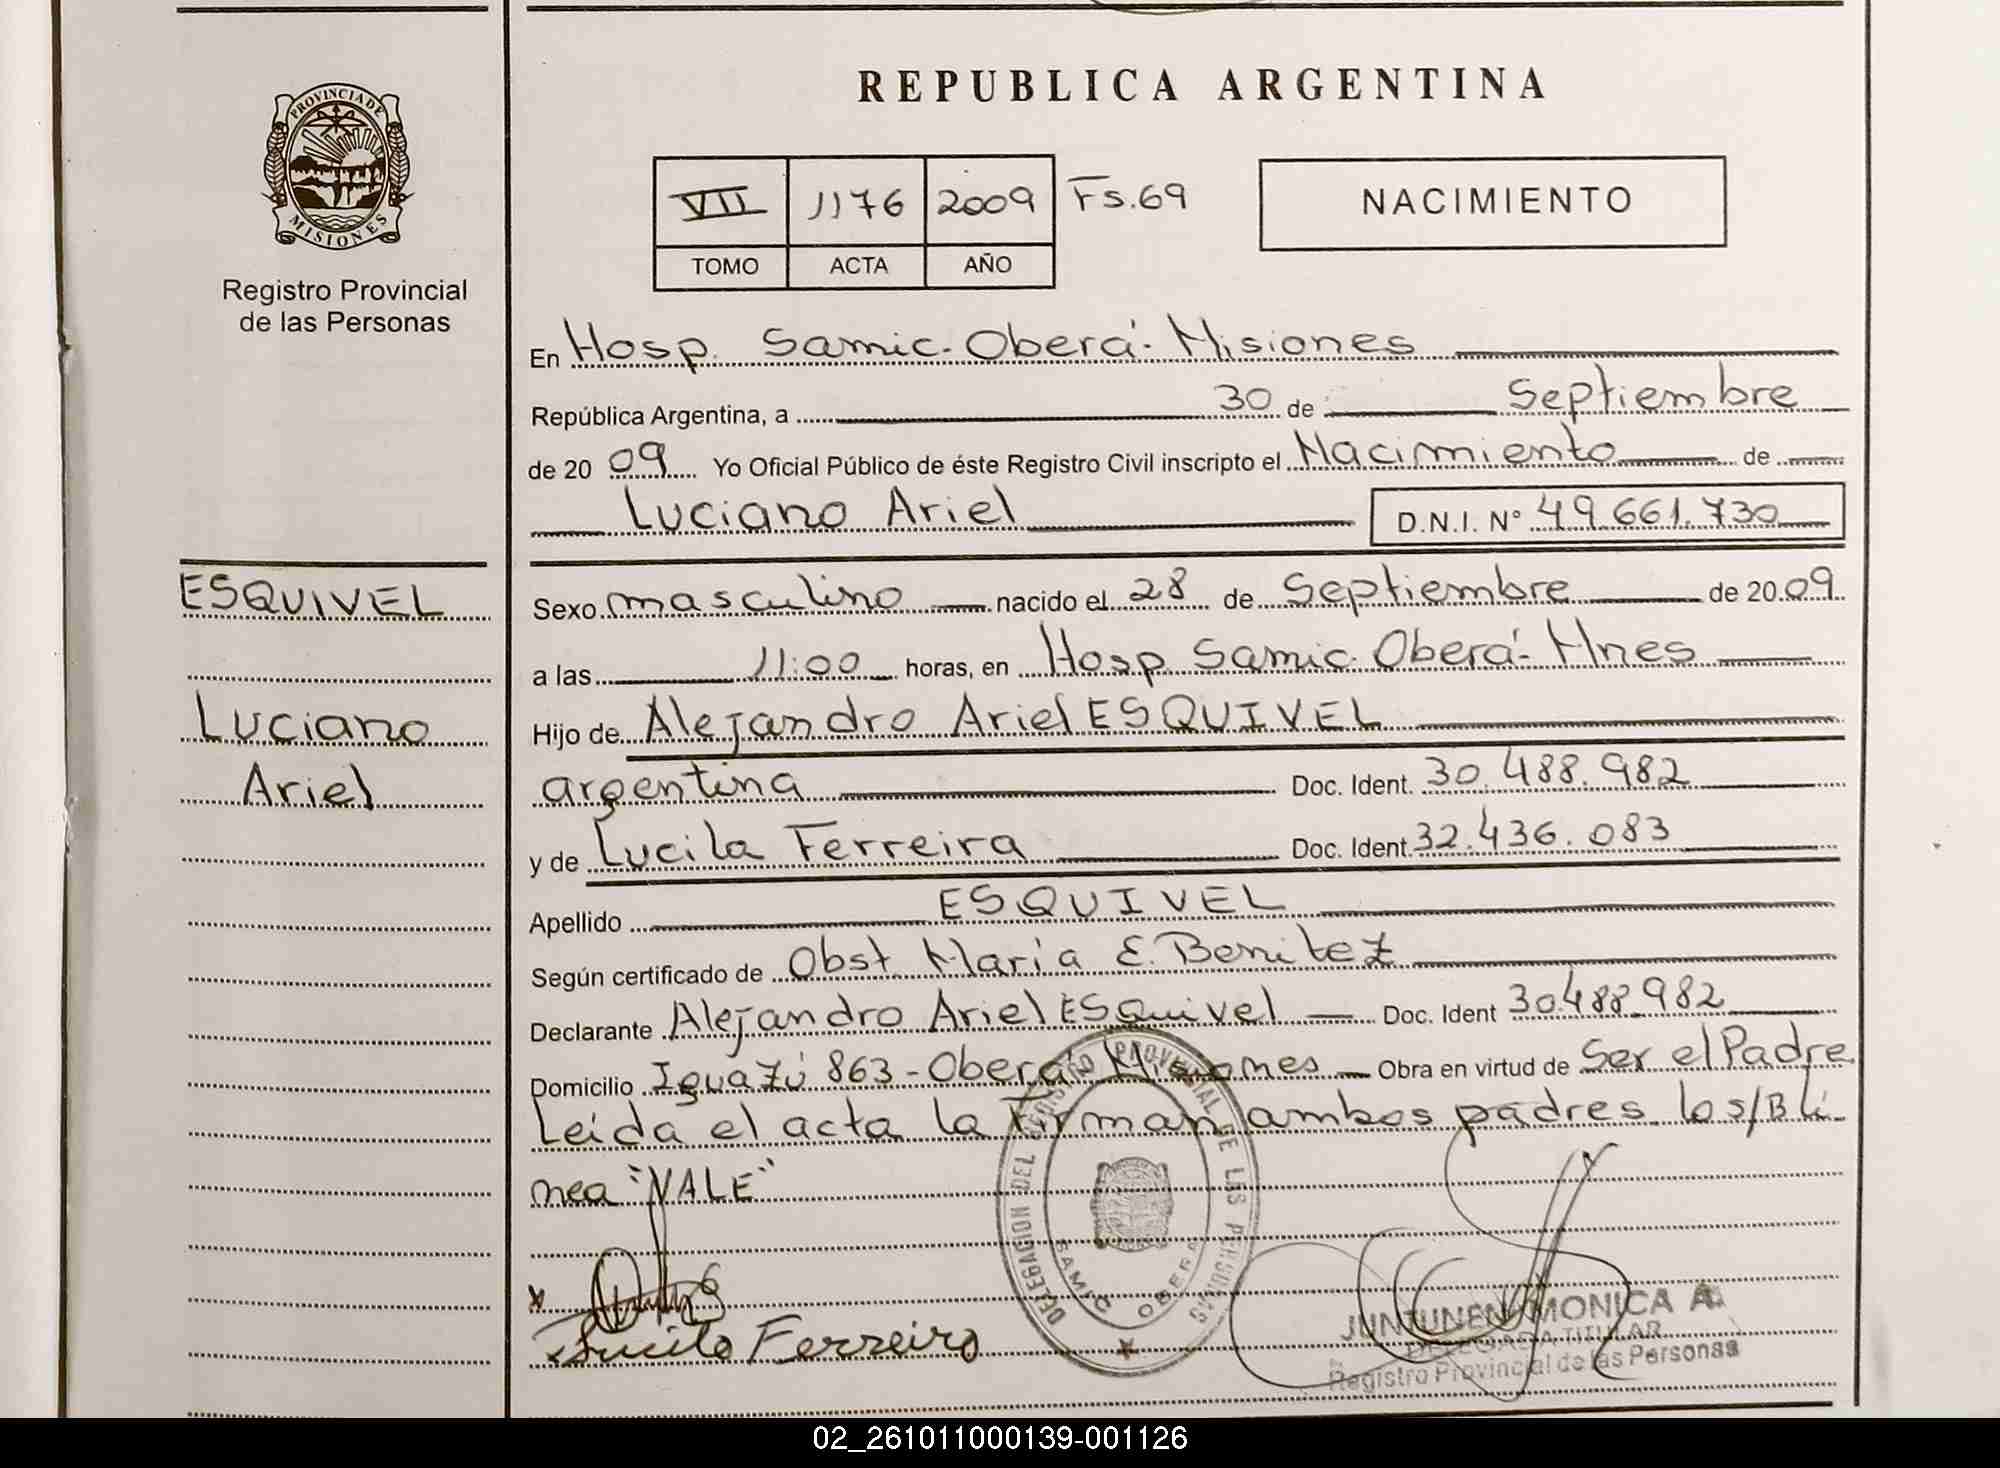 REPUBLICA ARGENTINA
PROVINCIA DE
MISIONES
Registro Provincial
de las Personas
VII 1176 2009 Fs.69
TOMO ACTA AÑO
NACIMIENTO
En Hosp. Samic. Oberá - Misiones
República Argentina, a 30 de Septiembre
de 2009 Yo Oficial Público de éste Registro Civil inscripto el Nacimiento de
Luciano Ariel D.N.I. N° 49.661.730
ESQUIVEL
Luciano
Ariel
Sexo masculino nacido el 28 de Septiembre de 2009
a las 11:00 horas, en Hosp. Samic. Oberá - Mnes
Hijo de Alejandro Ariel ESQUIVEL
argentina Doc. Ident. 30.488.982
y de Lucila Ferreira Doc. Ident. 32.436.083
Apellido ESQUIVEL
Según certificado de Obst. Maria E. Benitez
Declarante Alejandro Ariel ESquivel Doc. Ident 30.488.982
Domicilio Iguazú 863 - Oberá - Misiones Obra en virtud de Ser el Padre
Leída el acta la firman ambos padres. los s/B lí-
nea "VALE"
DELEGACION DEL REGISTRO PROVINCIAL DE LAS PERSONAS
SAMIC OBERA
Lucila Ferreira
JUNTUNEN MONICA A.
DELEGADA TITULAR
Registro Provincial de las Personas
02_261011000139-001126